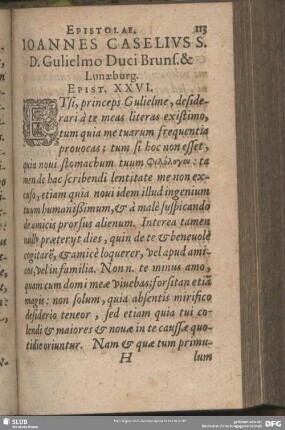 EPISTOLAE. 113
IOANNES CASELIVS S.
D. Gulielmo Duci Brunſ. &
Lunæburg.
EPIST. XXVI.
ETſi, princeps Gulielme, deſide-
rari à te meas literas exiſtimo,
tum quia me tuarum frequentia
prouocas; tum ſi hoc non eſſet,
quia noui ſtomachum tuum Φιλόλογον: ta
men de hac ſcribendi lentitate me non ex-
cuſo, etiam quia noui idem illud ingenium
tuum humaniſſimum, & à malè ſuſpicando
de amicis prorſus alienum. Interea tamen
nullus præteryt dies, quin de te & beneuolè
cogitarē, & amicè loquerer, vel apud ami-
cos, vel in familia. Non n. te minus amo,
quam cum domi meæ viuebas; forſitan etiā
magis: non ſolum, quia abſentis mirifico
deſiderio teneor, ſed etiam quia tui co-
lendi & maiores & nouæ in te cauſſæ quo-
tidie oriuntur. Nam & quæ tum primu-
H lum
SLUB
DFG